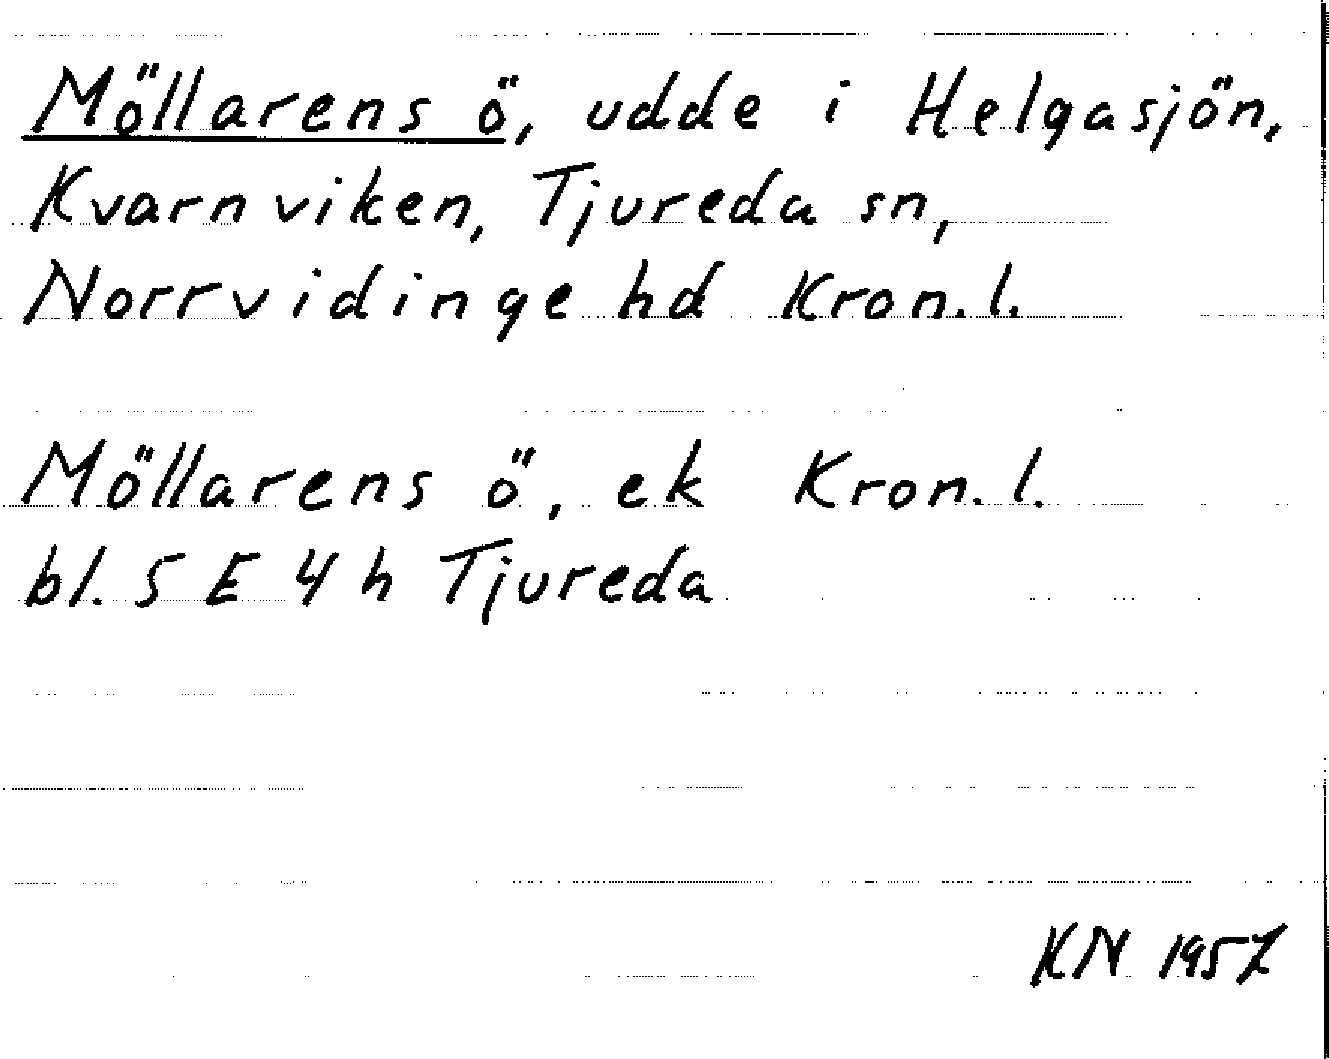 Möllarens ö, udde i Helgasjön,
Kvarnviken, Tjureda sn,
Norrvidinge hd Kron.l.
Möllarens ö, ek Kron.l.
bl. 5 E 4 h Tjureda
KN 1957